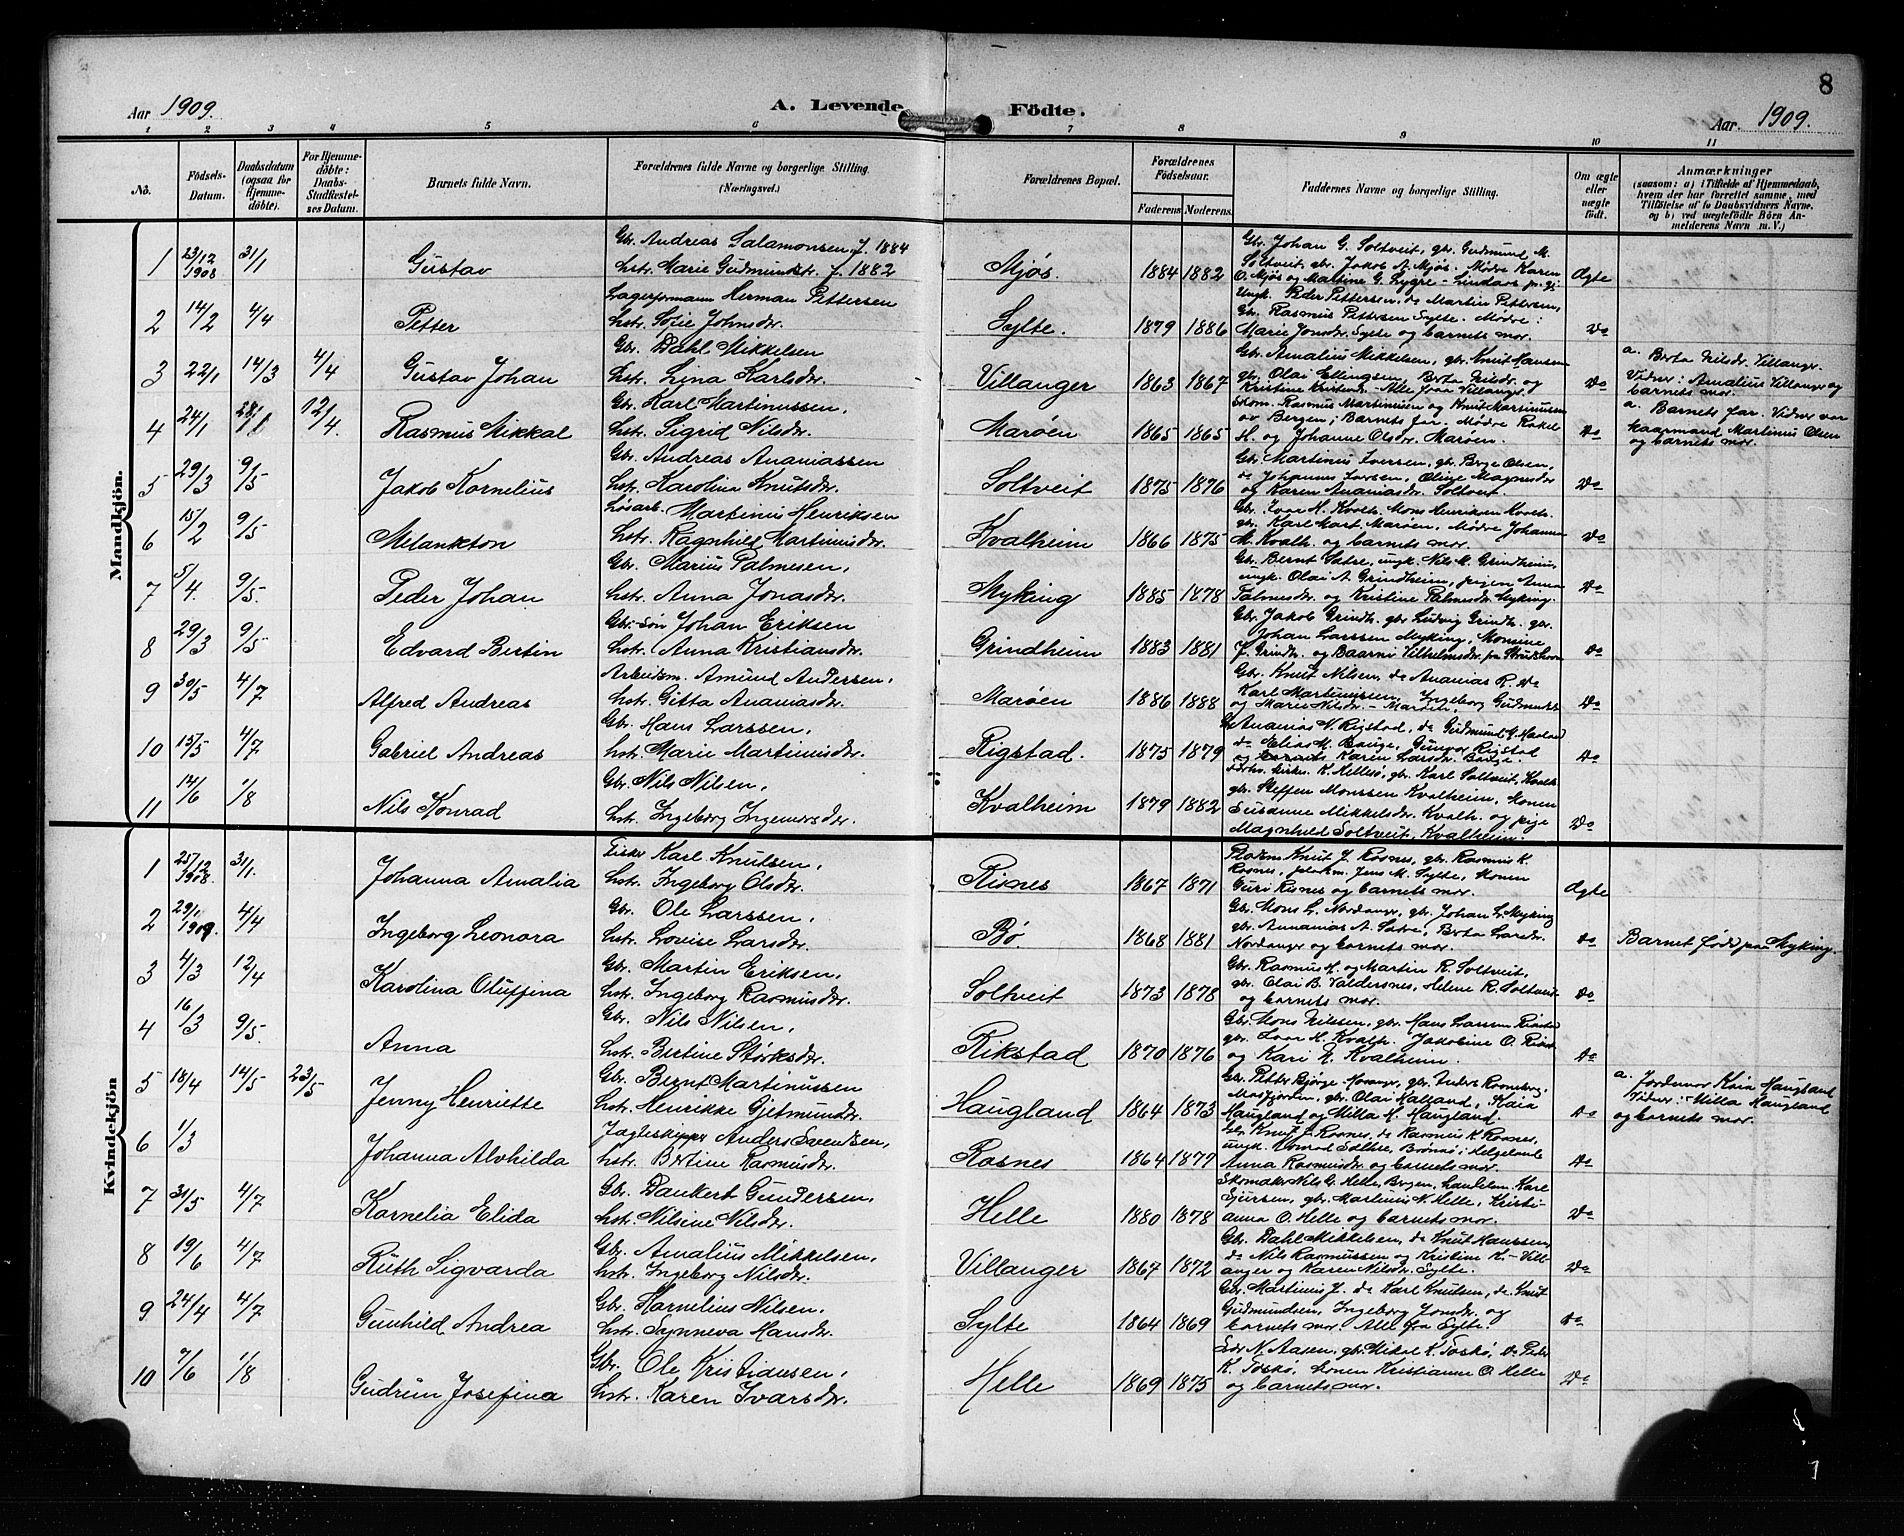 8
Aar 1909.
A. Levende Födte.
Aar 1909.
1 2 3 4 5 6 7 8 9 10 11
No. Födsels-Datum. Daabsdatum (ogsaa for Hjemmedöbte). For Hjemmedöbte: Daabs-Stadfæstelses Datum. Barnets fulde Navn. Forældrenes fulde Navne og borgerlige Stilling. (Næringsvei.) Forældrenes Bopæl. Forældrenes Födselsaar. Faderens Moderens. Faddernes Navne og borgerlige Stilling. Om ægte eller uægte födt. Anmærkninger (saasom: a) i Tilfælde af Hjemmedaab, hvem der har forrettet samme, med Tilföielse af to Daabsvidners Navne, og b) ved uægtefödte Börn Anmelderens Navn m. V.)
Mandkjön.
1 23/12 1908 31/1 Gustav Gbr. Andreas Salamonsen f. 1884
hstr. Marie Gudmundsdr. f. 1882 Mjøs. 1884 1882 Gbr. Johan G. Soltveit, gbr. Gudmund M.
Soltveit, gbr. Jakob A. Mjøs. Mødre Karen
O. Mjøs og Martine G. Lygre - Lindaas p. gj. ægte
2 14/2 4/4 Petter Lagerformann Herman Pettersen
hstr. Sofie Johnsdr. Sylte. 1879 1886 Ungk. Peder Pettersen, do Martin Pettersen,
Gbr. Rasmus Pettersen Sylte. Mødre:
Marie Jonsdr. Sylte og barnets mor. Do
3 22/1 14/3 4/4 Gustav Johan Gbr. Dahl Mikkelsen
hstr. Lina Karlsdr. Villanger 1863 1867 Gbr. Amalius Mikkelsen, gbr. Knut Hansen
gbr. Olai Ellingsen, Berta Nilsdr. og
Kristine Knutsdr. - Alle fraa Villanger. Do a. Berta Nilsdr. Villanger.
Vidner: Amalius Villanger og
barnets mor.
4 24/1 12/4. Rasmus Mikkal Gbr. Karl Martinussen,
hstr. Sigrid Nilsdr. Marøen 1865 1865 Skom. Rasmus Martinusen og Knut Martinussen
av Bergen, Barnets far. Mødre Rakel
H. og Johanne Olsdr. Marøen. Do a. Barnets far. Vidner var
haarmand Martinus Olsen
og barnets mor.
5 29/3 9/5 Jakob Kornelius Gbr. Andreas Ananiassen
hstr. Karolina Knutsdr. Soltveit 1875 1876 Gbr. Martinus Iversen, gbr. Brge Olsen,
do Johannes Iversen, Oline Magnusdr
og Karen Ananiasdr. Soltveit. Do
6 15/2 9/5 Melankton Løsarb. Martinus Henriksen
hstr. Ragnhild Martinusdr. Kvalheim 1866 1875 Gbr. Ivar H. Kvalh. Mons Henriksen Kvalh.
gbr. Karl Mart. Marøen, Mødre Johanna
M. Kvalh. og barnets mor. Do
7 5/4. 9/5. Peder Johan Gbr. Marius Palmesen,
hstr. Anna Jonasdr. Myking 1885 1878 Gbr. Bernt Sætre, ungk. Nils M. Grindheim,
ungk. Olai A. Grindheim, pigen Anna
Palmesdr. og Kristine Palmesdr. Myking. Do
8 29/3 9/5 Edvard Bertin Gbr.-søn Johan Eriksen
hstr. Anna Kristiansdr. Grindheim 1883 1881 Gbr. Jakob Grindh. gbr Ludvig Grindh. gbr.
Johan Larssen Myking. Monsine
J. Grindh. og Baarni Vilhelmsdr. Do
9 30/5 4/7 Alfred Andreas Arbeidsm. Amund Andersen,
hstr. Gitta Ananiasdr. Marøen 1886 1888 Gbr. Knut Nilsen, do Ananias R. Do
Karl Martinussen, Ingeborg Gudmundsd.
og Marie Nilsdr. - Marøen. Do
10 15/5 4/7 Gabriel Andreas Gbr. Hans Larssen,
hstr. Marie Martinusdr. Rigstad. 1875 1879 Gbr. Ananias N. Rigstad, do Gudmund G.
do Elias M. Bauge, Gunvor Rigstad
og Karen Larsdr. Bauge. Do
11 14/6 1/8 Nils Konrad Gbr. Nils Nilsen,
hstr. Ingeborg Ingemorsdr. Kvalheim 1879 1882 Kirkes. K. Hellesø, gbr. Karl Soltveit, Kvalh.
gbr. Steffen Monssen Kvalheim, Konen
Susanne Mikkelsdr. Kvalh. og pige
Magnhild Soltveit, Kvalheim. Do
Kvindekjön
1 25/12 1908. 31/1. Johanna Amalia Fisker Karl Knutsen,
hstr. Ingeborg Olsdr. Risnes 1867 1871 Knut J. Rosnes, gbr. Rasmus K.
Rosnes, Jens M. Sylte, Konen
Guri Risnes og barnets mor. ægte
2 29/1 1909. 4/4 Ingeborg Leonora Gbr. Ole Larssen,
hstr. Lovise Larsdr. Bø 1868 1881 Gbr. Mons L. Nordanger, gbr. Johan L. Myking
gbr. Annanias A. Sætre, Berta Larsdr.
Nordanger og barnets mor. Do Barnet født paa Myking.
3 4/3 12/4 Karolina Oluffina Gbr. Martin Eriksen,
hstr. Ingeborg Rasmusdr. Soltveit 1873 1878 Gbr. Rasmus H. og Martin R. Soltveit,
gbr. Olai B. Valdersnes, Helene R. Soltveit
og barnets mor. Do
4 16/3 9/5. Anna Gbr. Nils Nilsen,
hstr. Bertine Størksdr. Rikstad 1870 1876 Gbr. Mons Nilssen, gbr. Hans Larssen Rikstad
gbr. Ivar H. Kvalh. Jakobine O. Rikst.
og Kari H. Kvalheim. Do
5 18/4 14/5 23/5 Jenny Henriette Gbr. Bernt Martinussen
hstr. Henrikke Gjetmundsdr. Haugland 1864 1873 Gbr. Petter Bjørge Moranger, gbr. Anders Rosneberg,
Masfjorden, gbr. Olai Halland, Kaia
Haugland og Milla H. Haugland. Do a. Jordmor Kaia Haugland
Vidner: Milla Haugland
og barnets mor.
6 1/3 Johanna Alvhilda Jagteskipper Anders Svendsen,
hstr. Bertine Rasmusdr. Rosnes 1864 1877 Gbr. Knut J. Rosnes, do Rasmus K. Rosnes,
ungk. Konrad Solthve, Brønøs i Helgeland
Anna Rasmusdr. og barnets mor. Do
7 31/5 4/7 Kornelia Elida Gbr. Dankert Gundersen,
hstr. Nilsine Nilsdr. Helle 1880 1878 Skomaker Nils G. Helle, Bergen, Karl
Sjursen, gbr. Martinus N. Helle, Kristi-
anna O. Helle og barnets mor. Do
8 19/6 4/7 Ruth Sigvarda Gbr. Amalius Mikkelsen,
hstr. Ingeborg Nilsdr. Villanger 1867 1872 Gbr. Dahl Mikkelsen, do Knut Hanssen,
do Nils Rasmussen og Kristine K. - Vill-
anger og Karen Nilsdr. Sylte. Do
9 24/4 4/7 Gunhild Andrea Gbr. Kornelius Nilsen.
hstr. Synneva Hansdr. Sylte 1864 1869 Gbr. Martinus J. do Karl Knutsen, do. Knut
Gudmundsen, Ingeborg Jonsdr. og
barnets mor. Alle fra Sylte. Do
10 7/6 1/8 Gudrun Josefina Gbr. Ole Kristiansen,
hstr. Karen Ivarsdr. Helle 1869 1875 Edv. N. Aasen, gbr. Mikal K. Toskø, Do Peder
K. Toskø, konen Kristianne O. Helle
og barnets mor. Do